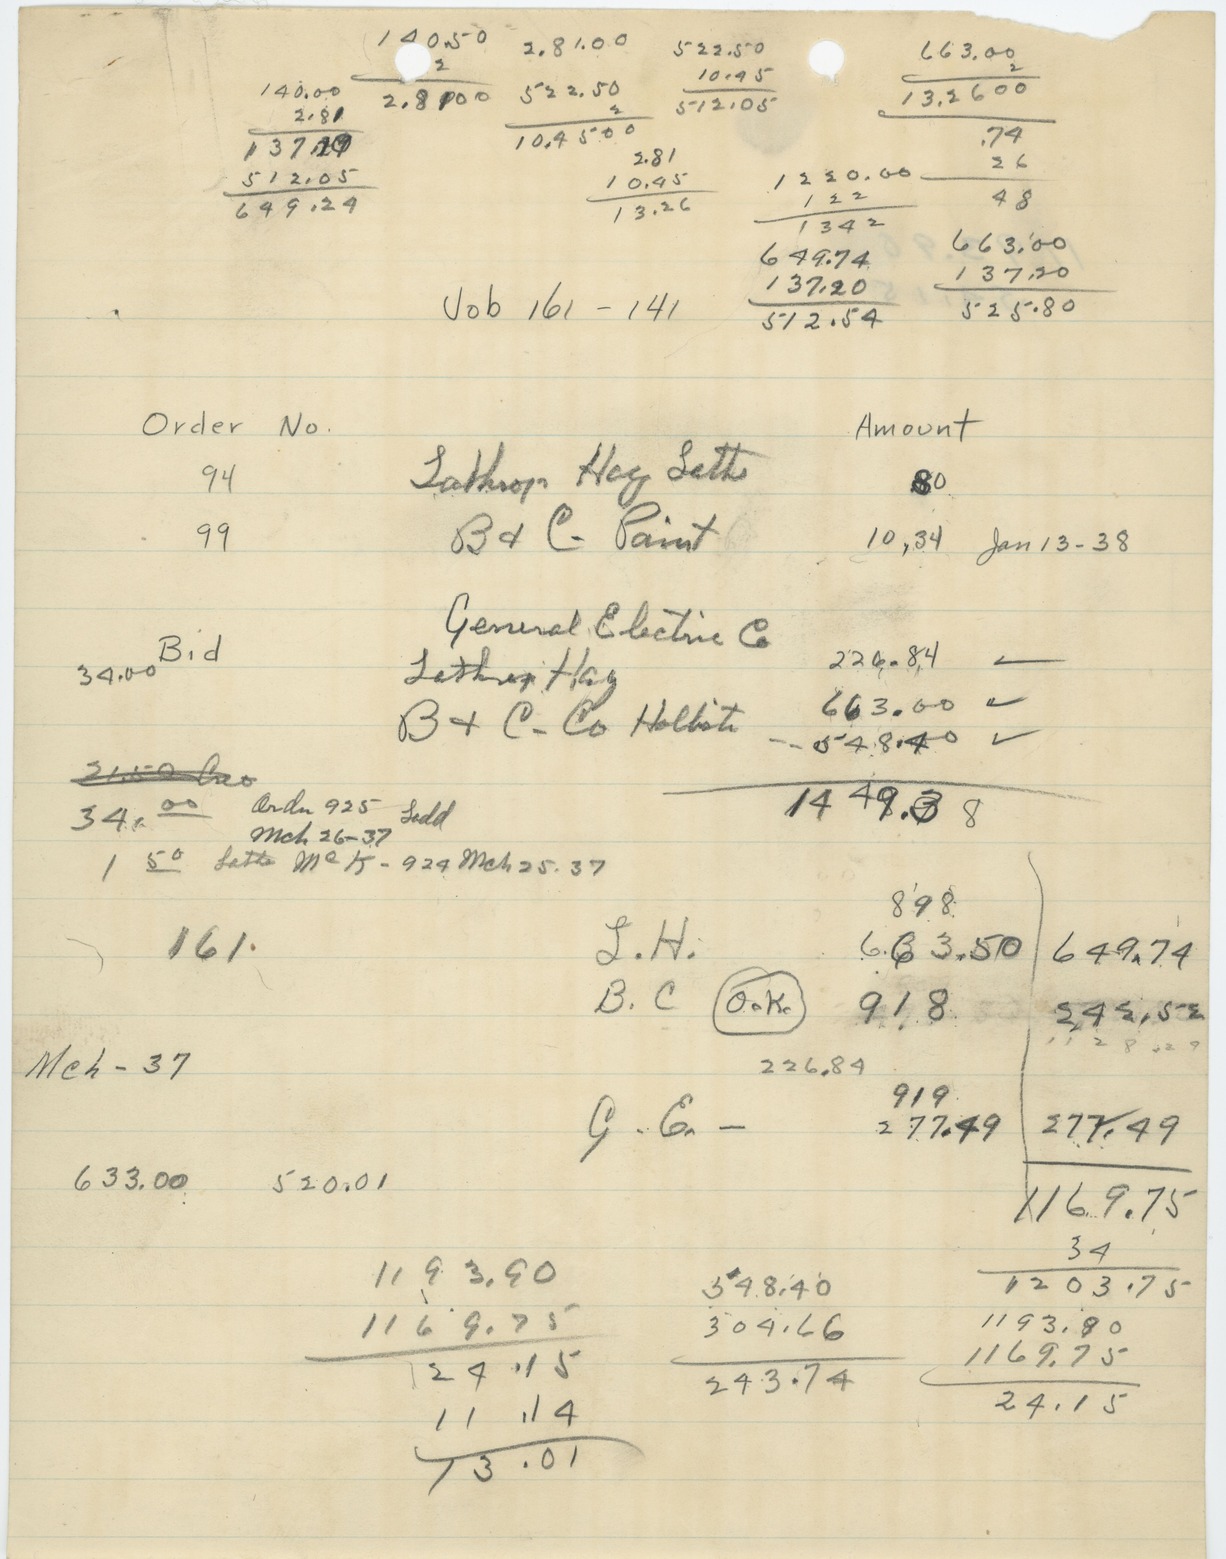 140.50 2.81.00 522.50 663.00
2 10.45 2
140.00 2.8100 522.50 512.05 13.2600
2.81 2 .74
137.19 10.4500 26
512.05 2.81 1220.00 48
649.24 10.45 122
13.26 1342
649.74 663.00
137.20 137.20
Job 161 - 141 512.54 525.80
Order No. Amount
94 Lathrop Hay 80
99 B & C - Paint 10,34 Jan 13-38
General Electric Co
Bid 226.84
34.00 Lathrop Hay 663.00
B & C - Co 548.40
21.50
34.00 Order 925 1449.38
Mch 26-37
1 50 Mc K - 924 Mch 25.37
898
161. L.H. 663.50 649.74
B.C O.K. 918 242.52
1128.29
Mch - 37 226.84
919
G.E. - 277.49 277.49
633.00 520.01 1169.75
34
1193.90 548.40 1203.75
1169.75 304.66 1193.80
24.15 243.74 1169.75
11.14 24.15
13.01